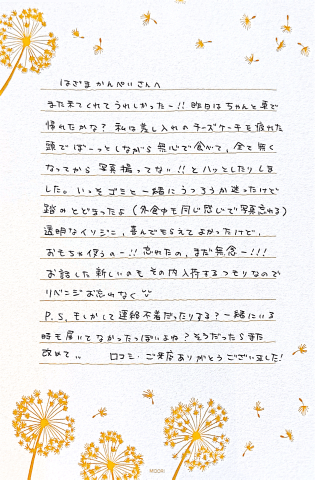 はざま かんぺいさんへ
また来てくれてうれしかったー!! 昨日はちゃんと車で
帰れたかな? 私は差し入れのチーズケーキを疲れた
頭でぼーっとしながら無心で食べて、全て無く
なってから写真撮ってない!! とハッとしたりしま
した。いっそゴミと一緒にうつろうか迷ったけど
踏みとどまったよ(外食中も同じ感じで写真忘れる)
透明なイソジン、喜んでもらえてよかったけど、
おもちゃ使うのー!! 忘れたの、まだ無念ー!!!
お話した新しいのも その内入荷するつもりなので
リベンジお忘れなく
P.S. もしかして連絡不着だったりする? 一緒にいる
時も届いてなかったっぽいよね? そうだったらまた
改めて 口コミ・ご来店ありがとうございました!
MIDORI